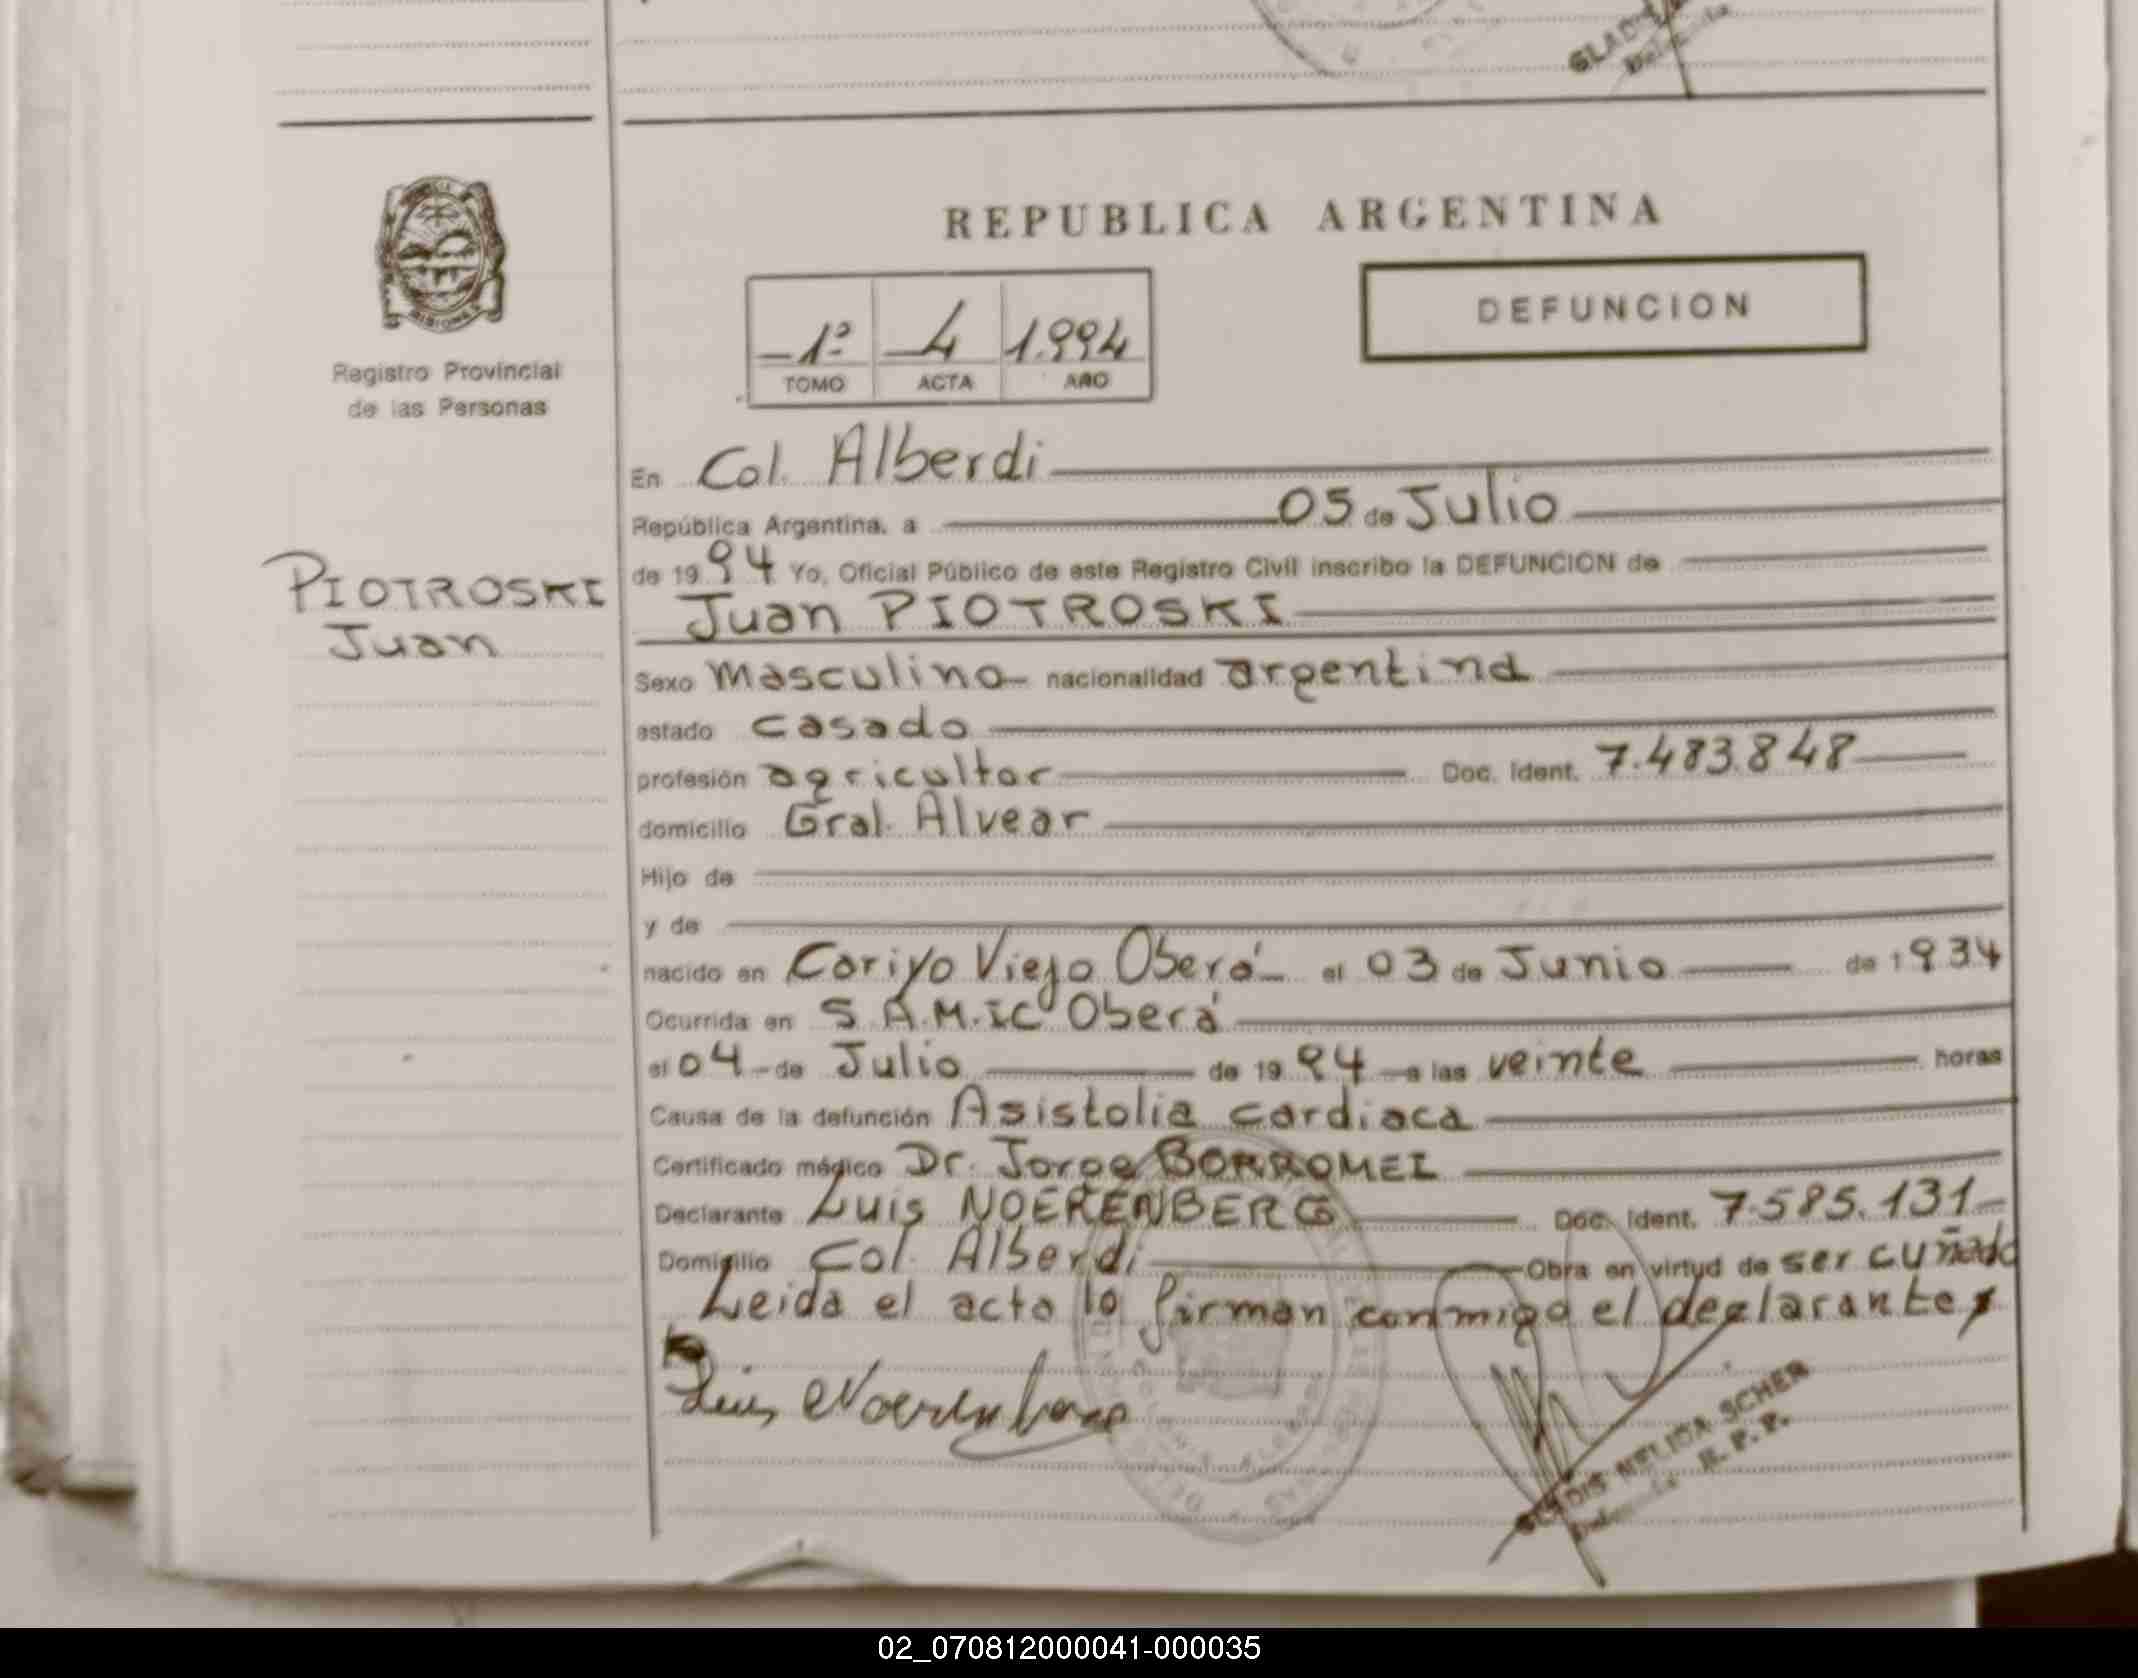 GLAD
REPUBLICA ARGENTINA
MISIONES
DEFUNCION
1º 4 1.994
TOMO ACTA AÑO
Registro Provincial
de las Personas
En Col. Alberdi
República Argentina, a 05 de Julio
de 1994 Yo, Oficial Público de este Registro Civil inscribo la DEFUNCION de
PIOTROSKI
Juan
Juan PIOTROSKI
Sexo masculino nacionalidad argentina
estado casado
profesión agricultor Doc. Ident. 7.483.848
domicilio Gral. Alvear
Hijo de
y de
nacido en Coriyo Viejo Oberá el 03 de Junio de 1934
Ocurrida en S.A.M.IC Oberá
el 04 de Julio de 1994 a las veinte horas
Causa de la defunción Asistolia cardiaca
Certificado médico Dr. Jorge BORROMEI
Declarante Luis NOERENBERG Doc. Ident. 7.585.131
Domicilio Col. Alberdi Obra en virtud de ser cuñado
Leida el acta lo firman conmigo el declarante
Luis Noerenberg
GLADIS NELIDA SCHER
R. P. P.
02_070812000041-000035